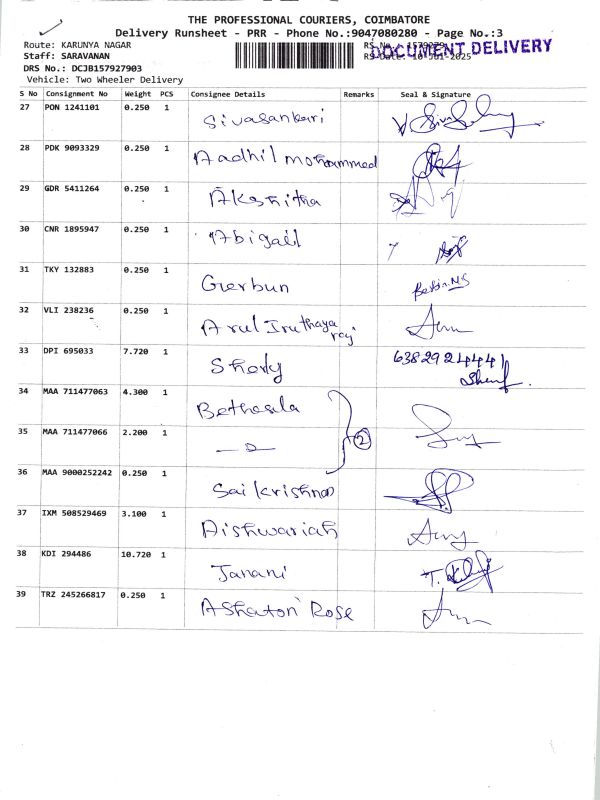 THE PROFESSIONAL COURIERS, COIMBATORE
Delivery Runsheet - PRR - Phone No.:9047080280 - Page No.:3
Route: KARUNYA NAGAR
Staff: SARAVANAN
DRS No.: DCJB157927903
Vehicle: Two Wheeler Delivery
DOCUMENT DELIVERY
S No Consignment No Weight PCS Consignee Details Remarks Seal & Signature
27 PON 1241101 0.250 1 Sivasankari
28 PDK 9093329 0.250 1 Aadhil mohammed
29 GDR 5411264 0.250 1 Akshitha
30 CNR 1895947 0.250 1 Abigail
31 TKY 132883 0.250 1 Gerbun
32 VLI 238236 0.250 1 Arul Iruthaya
raj
33 DPI 695033 7.720 1 Sherly 6382924441
34 MAA 711477063 4.300 1 Bethesda
35 MAA 711477066 2.200 1 2
36 MAA 9000252242 0.250 1 Sai Krishna
37 IXM 508529469 3.100 1 Aishwariah
38 KDI 294486 10.720 1 Janani
39 TRZ 245266817 0.250 1 Ashaton Rose